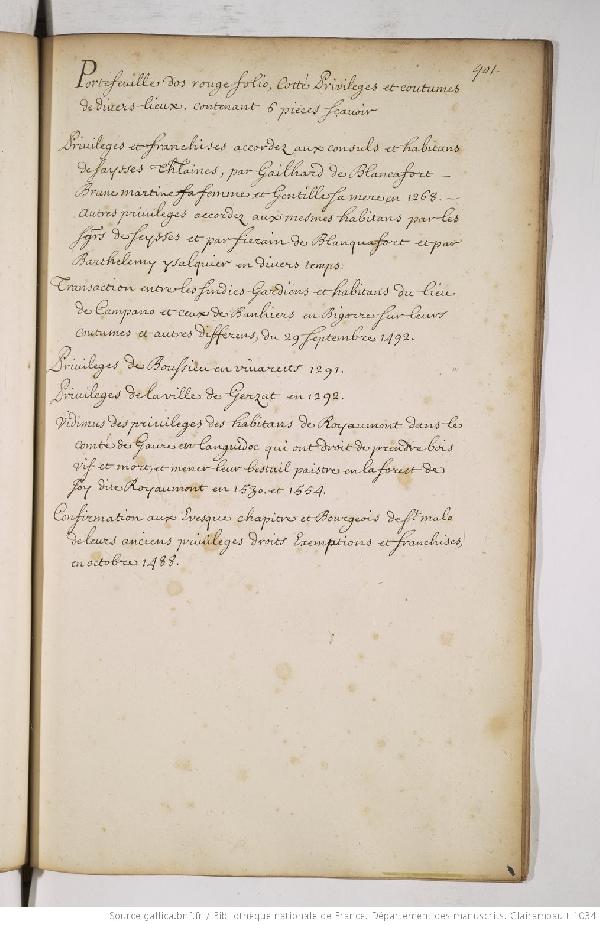 901.
Portefeuille dos rouge folio, Cotté Privileges et coutumes
de divers lieux, contenant 6 pieces sçavoir
Privileges et franchises accordez aux consuls et habitans
de saysses par Gailhard de Blancafort –
Brune martine sa femme et Gentille sa mere en 1268. –
autres privileges accordez aux mesmes habitans par les
sgrs de seysses et par fiezain de Blanquafort et par
Barthelemy ysalquier en divers temps.
Transaction entre les sindics Gardiens et habitans du lieu
de Campano et ceux de Banhiers en Bigorre sur leurs
coutumes et autres differens, du 29 septembre 1492.
Privileges de Boussieu en vivarests 1291.
Privileges de la ville de Gerzat en 1292.
Vidimus des privileges des habitans de Royaumont dans le
comté de Gaure en languedoc qui ont droit de prendre bois
vif et mort, et mener leur bestail paistre en la forest de
dite Royaumont en 1530. et 1554.
Confirmation aux Evesque chapitre et Bourgeois de St. malo
de leurs anciens privileges droits Exemptions et franchises,
en octobre 1488.
Source gallica.bnf.fr / Bibliothèque nationale de France. Département des manuscrits. Clairambault 1034